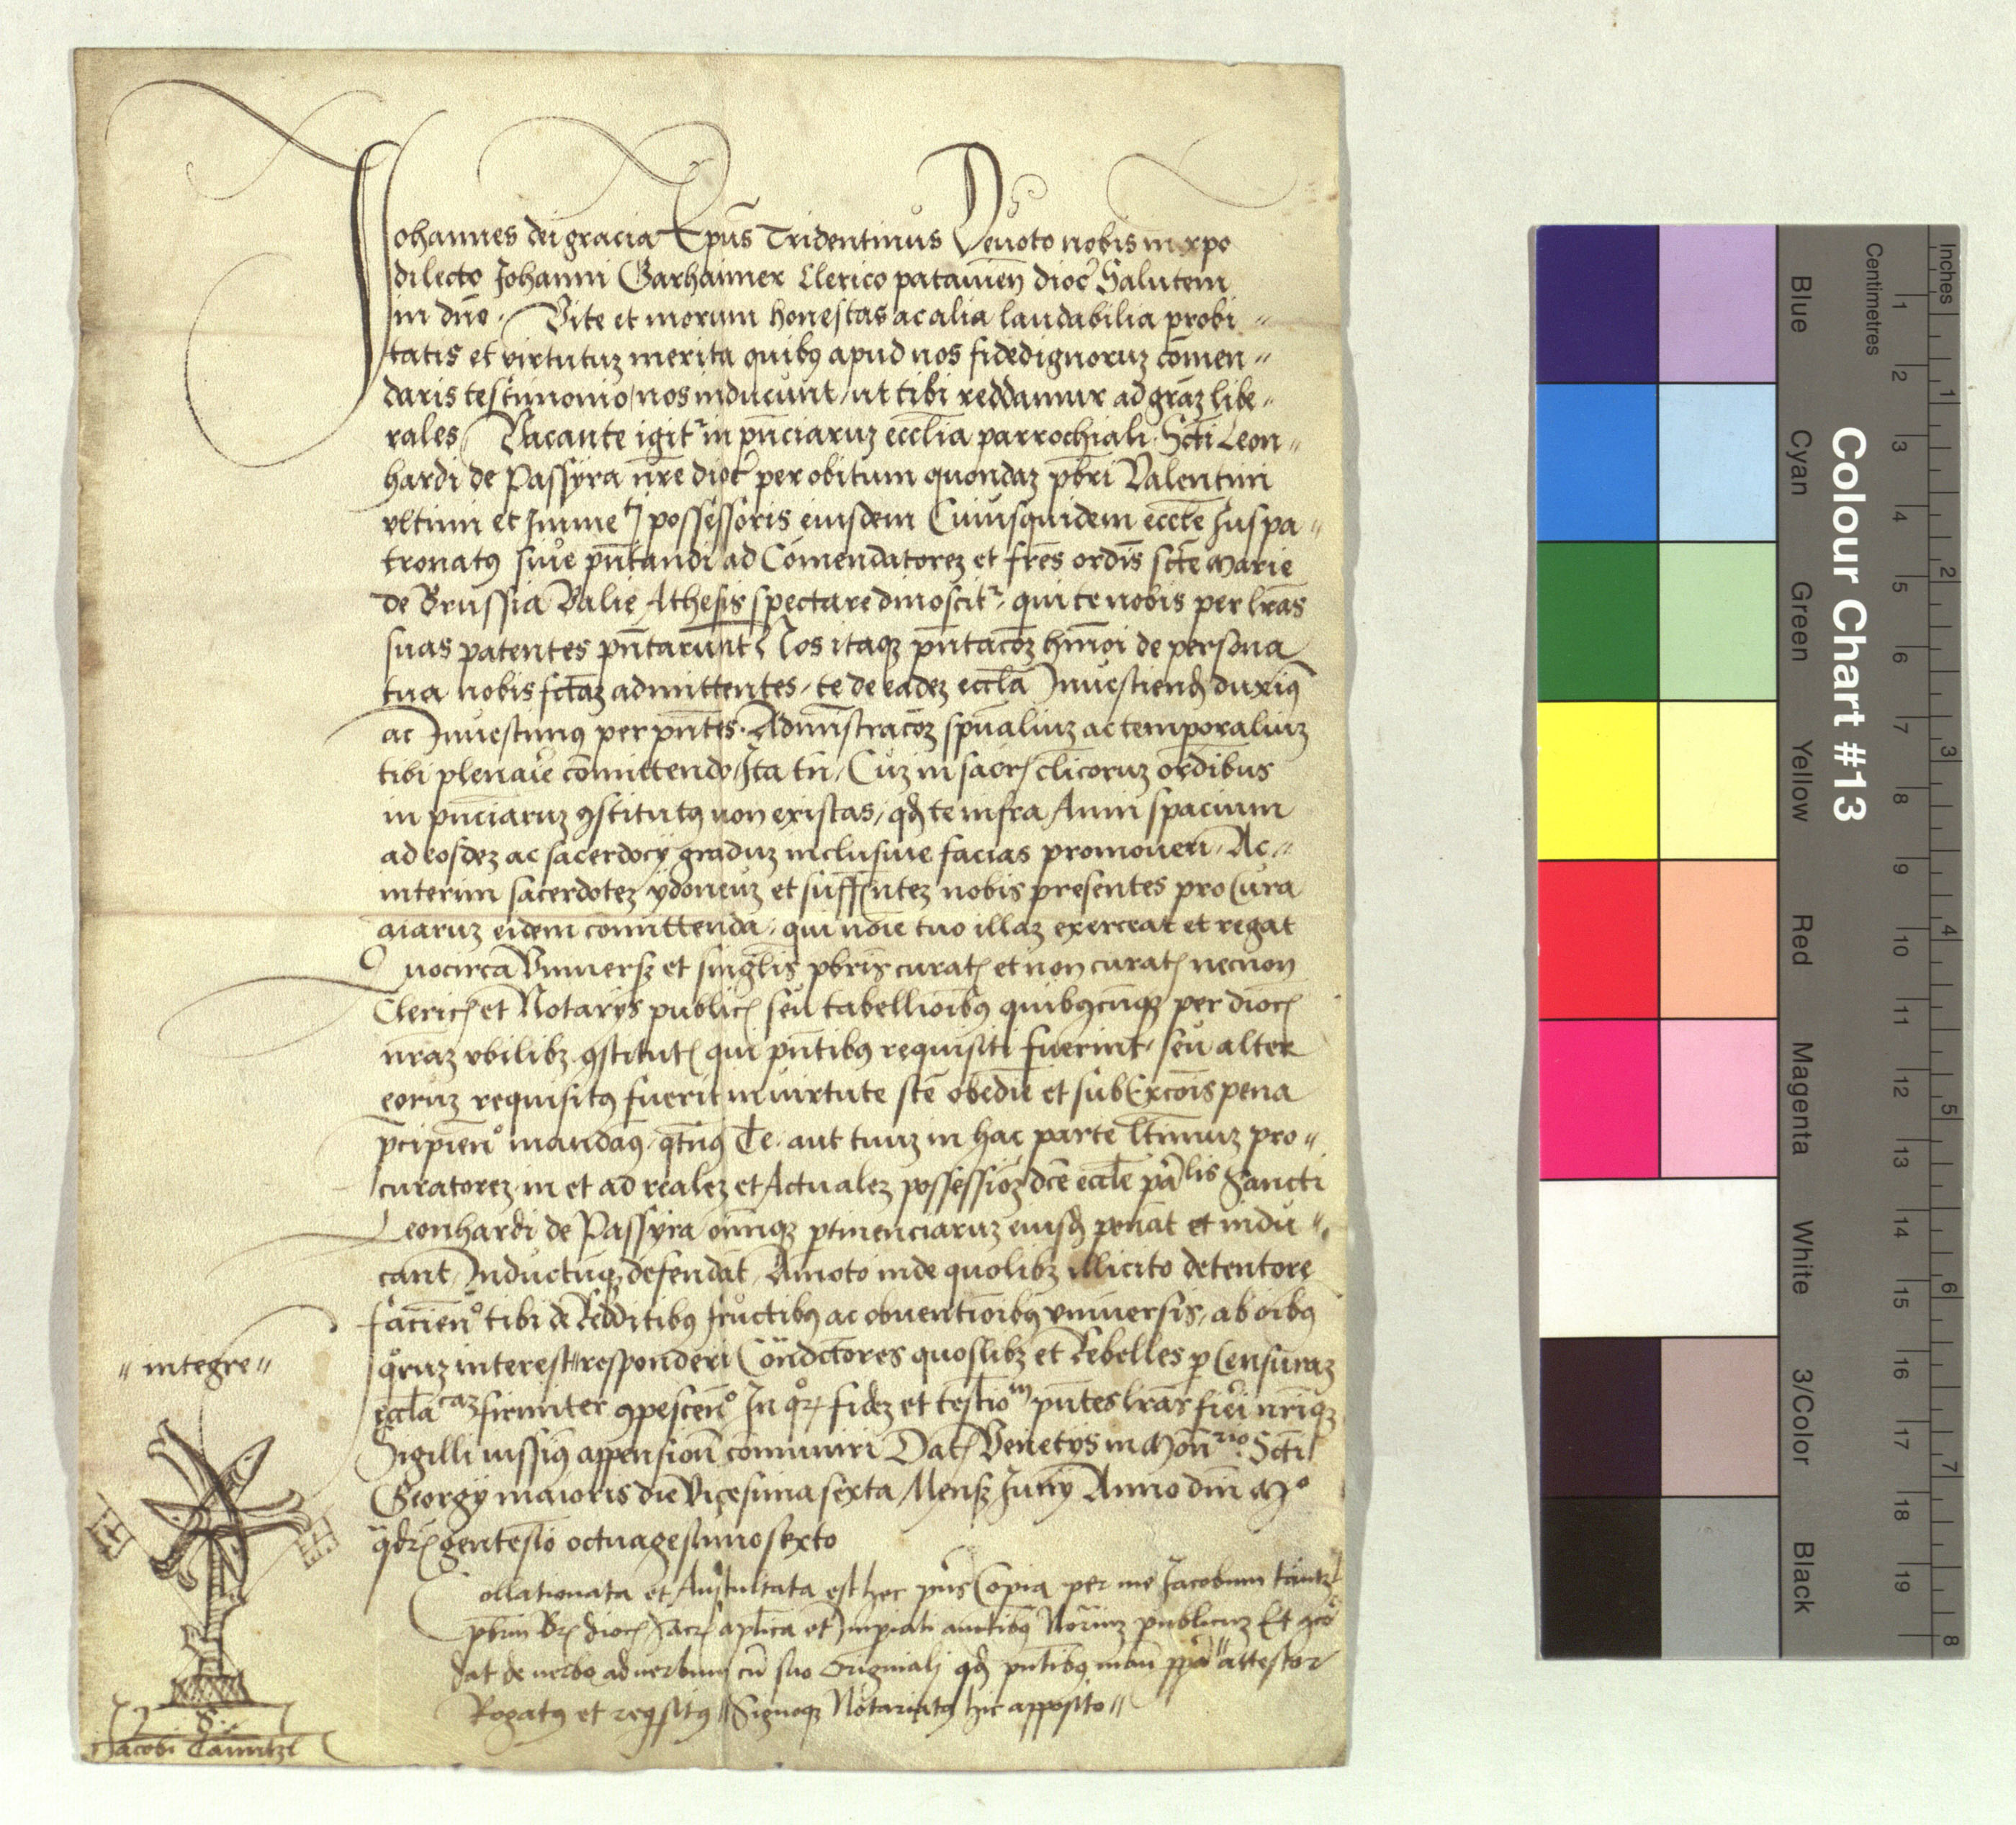 Johannes dei gracia Ep̄us Tridentinus Deuoto nobis in xpo
dilecto Johanni Garhaimer Clerico patauien̄ dioc̄ Salutem
in dn̄o. Vite et morum honestas ac alia laudabilia probi〃
tatis et virtutuʒ merita quibꝯ apud nos fidedignoruʒ com̄en〃
daris testimonio / nos inducunt / ut tibi reddamur ad gr̄aʒ libe〃
rales / Vacante igit̄ in pn̄ciaruʒ eccl̄ia parrochiali Sc̄ti Leon〃
hardi de Passÿra nr̄e dioc̄ per obitum quondaʒ pb̄ri Valentini
vltimi et Imme^ti possessoris eiusdem Cuiusquidem eccl̄e Juspa〃
tronatꝯ siue pn̄tandi ad Com̄endatoreʒ et fr̄es ordīs sc̄te Marie
de Brussia Valie Athesis spectare dinoscit̄ / qui te nobis per lr̄as
suas patentes pn̄tarunt / Nos itaqʒ pn̄tac̄oʒ hm̄oi de persona
tua nobis fc̄taʒ admittentes / te de eadeʒ eccl̄a Inuestiend̄ duximꝯ
ac Inuestimꝯ per pn̄tes. Admīstrac̄oʒ spūaliuʒ ac temporaliuʒ
tibi plenarie com̄ittendo / Ita tn̄ / Cuʒ in sacrꝭ cl̄icoruʒ ordībus
in pn̄ciaruʒ ꝯstitutꝯ non existas / qd̄ te infra Anni spacium
ad eosdeʒ ac sacerdocÿ graduʒ inclusiue facias promoueri / Ac〃
interim sacerdoteʒ ÿdoneuʒ et suffic̄nteʒ nobis presentes pro Cura
aīaruʒ eidem com̄ittenda / qui noīe tuo illaʒ exerceat et regat
Quocirca Vniuersꝭ et singl̄is pb̄ris curatꝭ et non curatꝭ necnon
Clericꝭ et Notarÿs publicꝭ seu tabellioībꝯ quibꝯcūqʒ per diocꝭ
nr̄aʒ vbilibʒ ꝯstitutꝭ qui pn̄tibꝯ requisiti fuerint / seu alter
eoruʒ requisitꝯ fuerit in virtute sc̄te obedīe et sub Exc̄ois pena
p̄cipien̄o mandamꝯ / qt̄nꝯ Te aut tuuʒ in hac parte lt̄imuʒ pro〃
curatoreʒ in et ad realeʒ et Actualeʒ possessioʒ dc̄e eccl̄e pa^lis Sancti
Leonhardi de Passÿra om̄iqʒ ꝑtinenciaruʒ eiusd̄ ponāt et indu〃
cant / Inductūqʒ defendāt / Amoto inde quolibʒ illicito detentore
facien̄o tibi de Redditibꝯ fructibꝯ ac obuentioībꝯ vniuersis / ab oībꝯ
〃 integre〃
quoruʒ interest〃 responderi Contradictores quoslibʒ et Rebelles ꝑ Censuraʒ
eccl̄a^caʒ firmiter ꝯpescen̄o In quorꝝ fideʒ et testio^m pn̄tes lr̄as fieri nr̄iqʒ
Sigilli iussimꝯ appensioē com̄uniri Datꝭ Venetÿs in Mon^rio Sc̄ti
Georgÿ maioris die Vicesima sexta Mensꝭ Junÿ Anno dn̄i M°
qdrꝭgentes̄io octuagesimosexto
Collationata et Auscultata est hec pn̄s Copia per me Jacobum tāntzl
pb̄rm Brꝭ diocꝭ Sacrꝭ apl̄ica et Imperiali auct̄tibꝯ Notriuʒ publicuʒ Et ꝯcor
dat de uerbo ad uerbum cū suo Originalj qd̄ pn̄tibꝯ manu ppa〃 attestor
Rogatꝯ et reqisitꝯ〃 Signoqʒ Notariatꝯ hic apposito〃
S.
Jacobi Tānntzl
Colour Chart #13
Inches 1 2 3 4 5 6 7 8
Centimetres 1 2 3 4 5 6 7 8 9 10 11 12 13 14 15 16 17 18 19
Blue Cyan Green Yellow Red Magenta White 3/Color Black